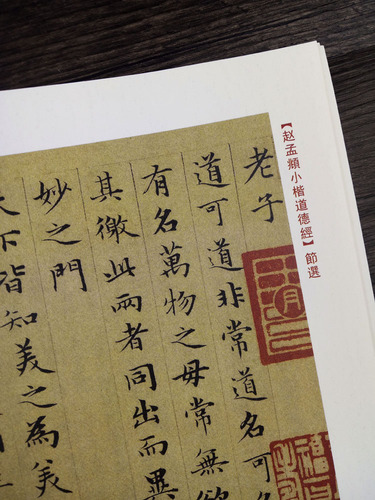 【赵孟頫小楷道德經】節選
老子
道可道非常道名可名
有名萬物之母常無欲
其徼此兩者同出而異
妙之門
天下皆知美之為美